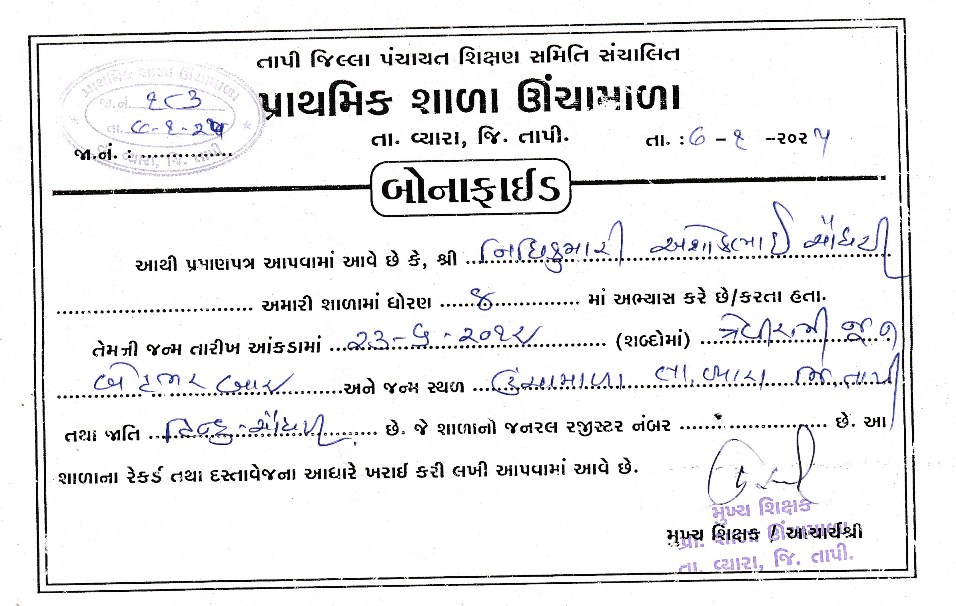 તાપી જિલ્લા પંચાયત શિક્ષણ સમિતિ સંચાલિત
પ્રાથમિક શાળા ઊંચામાળા
તા. વ્યારા, જિ. તાપી.
પ્રાથમિક શાળા ઊંચામાળા
જા.નં. ૧૮૩
તા.
તા. વ્યારા, જિ. તાપી
જા.નં. : ...............
તા. : ૭ - ૧ - ૨૦૨૫
બોનાફાઈડ
આથી પ્રમાણપત્ર આપવામાં આવે છે કે, શ્રી નિધિકુમારી અશોકભાઈ ચૌધરી
............................ અમારી શાળામાં ધોરણ ..... ............ માં અભ્યાસ કરે છે/કરતા હતા.
તેમની જન્મ તારીખ આંકડામાં ૨૩-૬-૨૦૧૨ (શબ્દોમાં) ત્રેવીસમી જૂન
બે હજાર બાર અને જન્મ સ્થળ ઊંચામાળા તા. વ્યારા જિ. તાપી
તથા જાતિ હિન્દુ-ચૌધરી છે. જે શાળાનો જનરલ રજીસ્ટર નંબર ........................ છે. આ
શાળાના રેકર્ડ તથા દસ્તાવેજના આધારે ખરાઈ કરી લખી આપવામાં આવે છે.
મુખ્ય શિક્ષક
મુખ્ય શિક્ષક / આચાર્યશ્રી
પ્રા. શાળા ઊંચામાળા
તા. વ્યારા, જિ. તાપી.